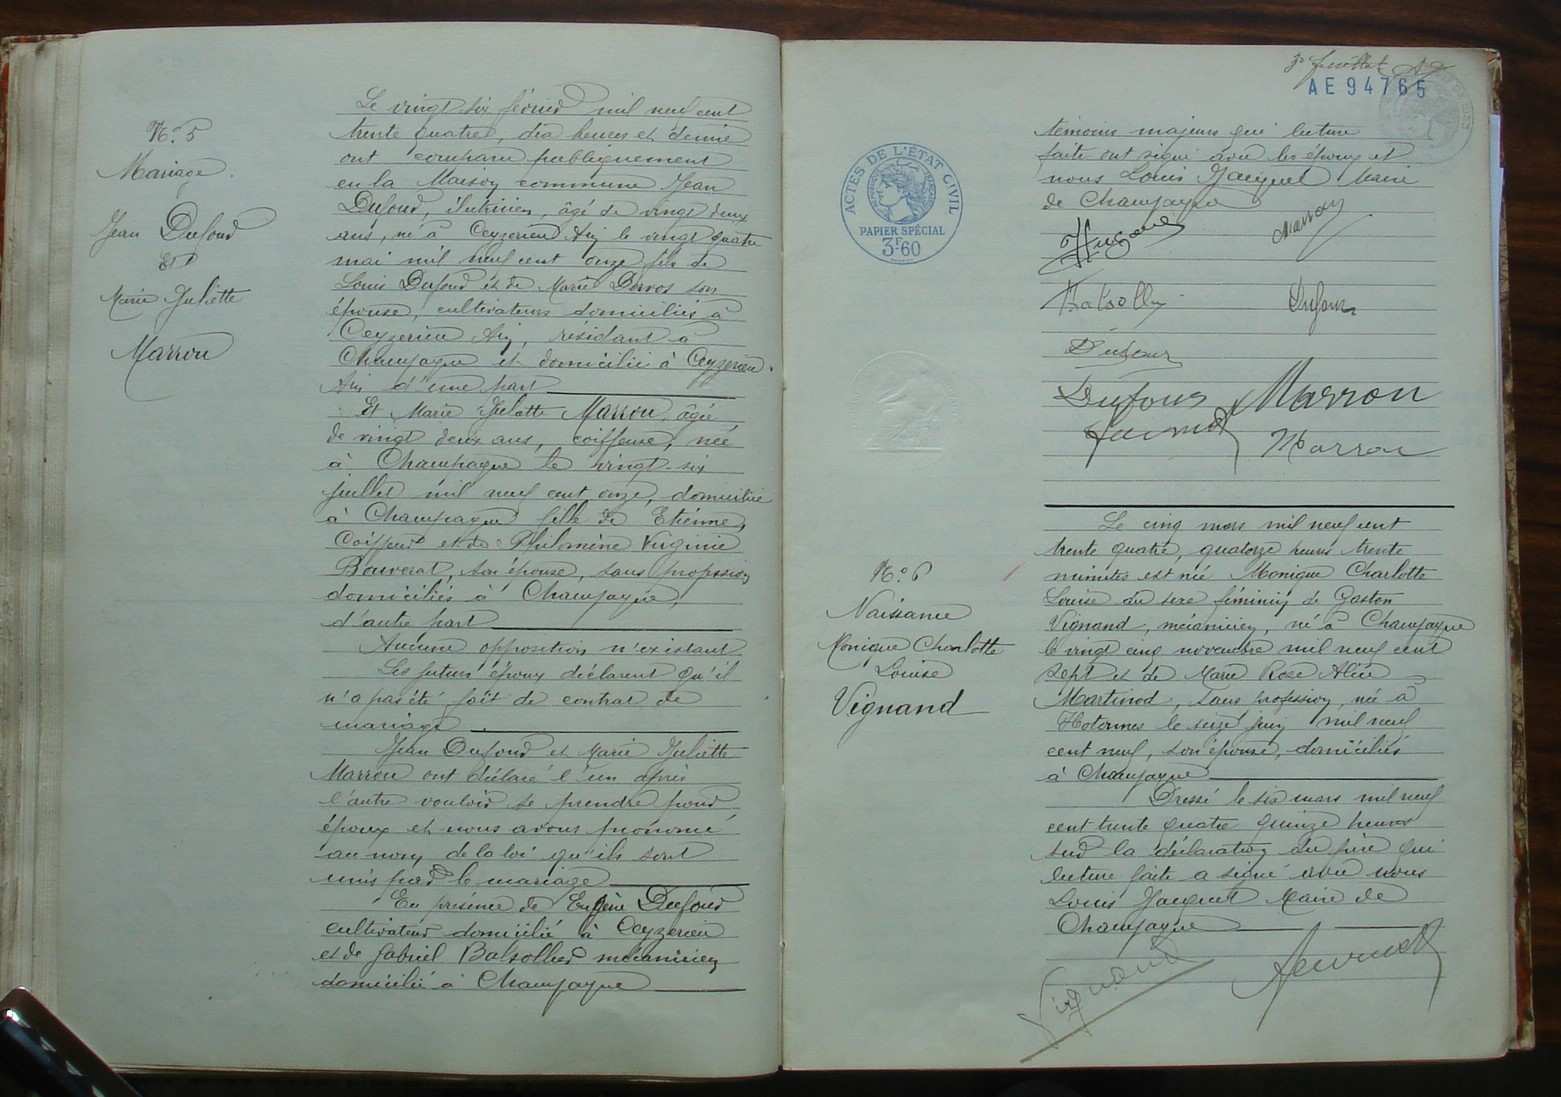 N° 5
Mariage
Jean Dufour
et
Marie Juliette
Marron
Le vingt six février mil neuf cent
trente quatre, dix heures et demie
ont comparu publiquement
en la Maison commune Jean
Dufour, âgé de vingt deux
ans, né à Ceyzerieu Ain le vingt quatre
mai mil neuf cent onze fils de
Louis Dufour et de Marie son
épouse, cultivateurs domiciliés à
Ceyzerieu Ain, résidant à
Champagne et domicilié à Ceyzerieu
Ain d'une part
Et Marie Juliette Marron, âgée
de vingt deux ans, coiffeuse, née
à Champagne le vingt six
juillet mil neuf cent onze, domiciliée
à Champagne fille de Etienne,
Coiffeur et de Philomène Virginie
Bouverat, son épouse, sans profession
domiciliés à Champagne,
d'autre part
Aucune opposition n'existant
Les futurs époux déclarent qu'il
n'a pas été fait de contrat de
mariage
Jean Dufour et Marie Juliette
Marron ont déclaré l'un après
l'autre vouloir se prendre pour
époux et nous avons prononcé
au nom de la loi qu'ils sont
unis par le mariage
En présence de Eugène Dufour
cultivateur domicilié à Ceyzerieu
et de Gabriel Batsollier mécanicien
domicilié à Champagne
3e feuillet
AE94765
témoins majeurs qui lecture
faite ont signé avec les époux et
nous Louis Jacquet Maire
de Champagne
ACTES DE L'ÉTAT CIVIL
PAPIER SPÉCIAL
3F60
Marron
Dufour
Dufour
Dufour Marron
Marron
N° 6
Naissance
Monique Charlotte
Louise
Vignand
Le cinq mars mil neuf cent
trente quatre, quatorze heures trente
minutes est née Monique Charlotte
Louise du sexe féminin de Gaston
Vignand, mécanicien, né à Champagne
le vingt cinq novembre mil neuf cent
sept et de Marie Rose Alice
Martinod, sans profession, née à
Hotonnes le seize juin mil neuf
cent neuf, son épouse, domiciliés
à Champagne
Dressé le six mars mil neuf
cent trente quatre quinze heures
sur la déclaration du père qui
lecture faite a signé avec nous
Louis Jacquet Maire de
Champagne
Vignand